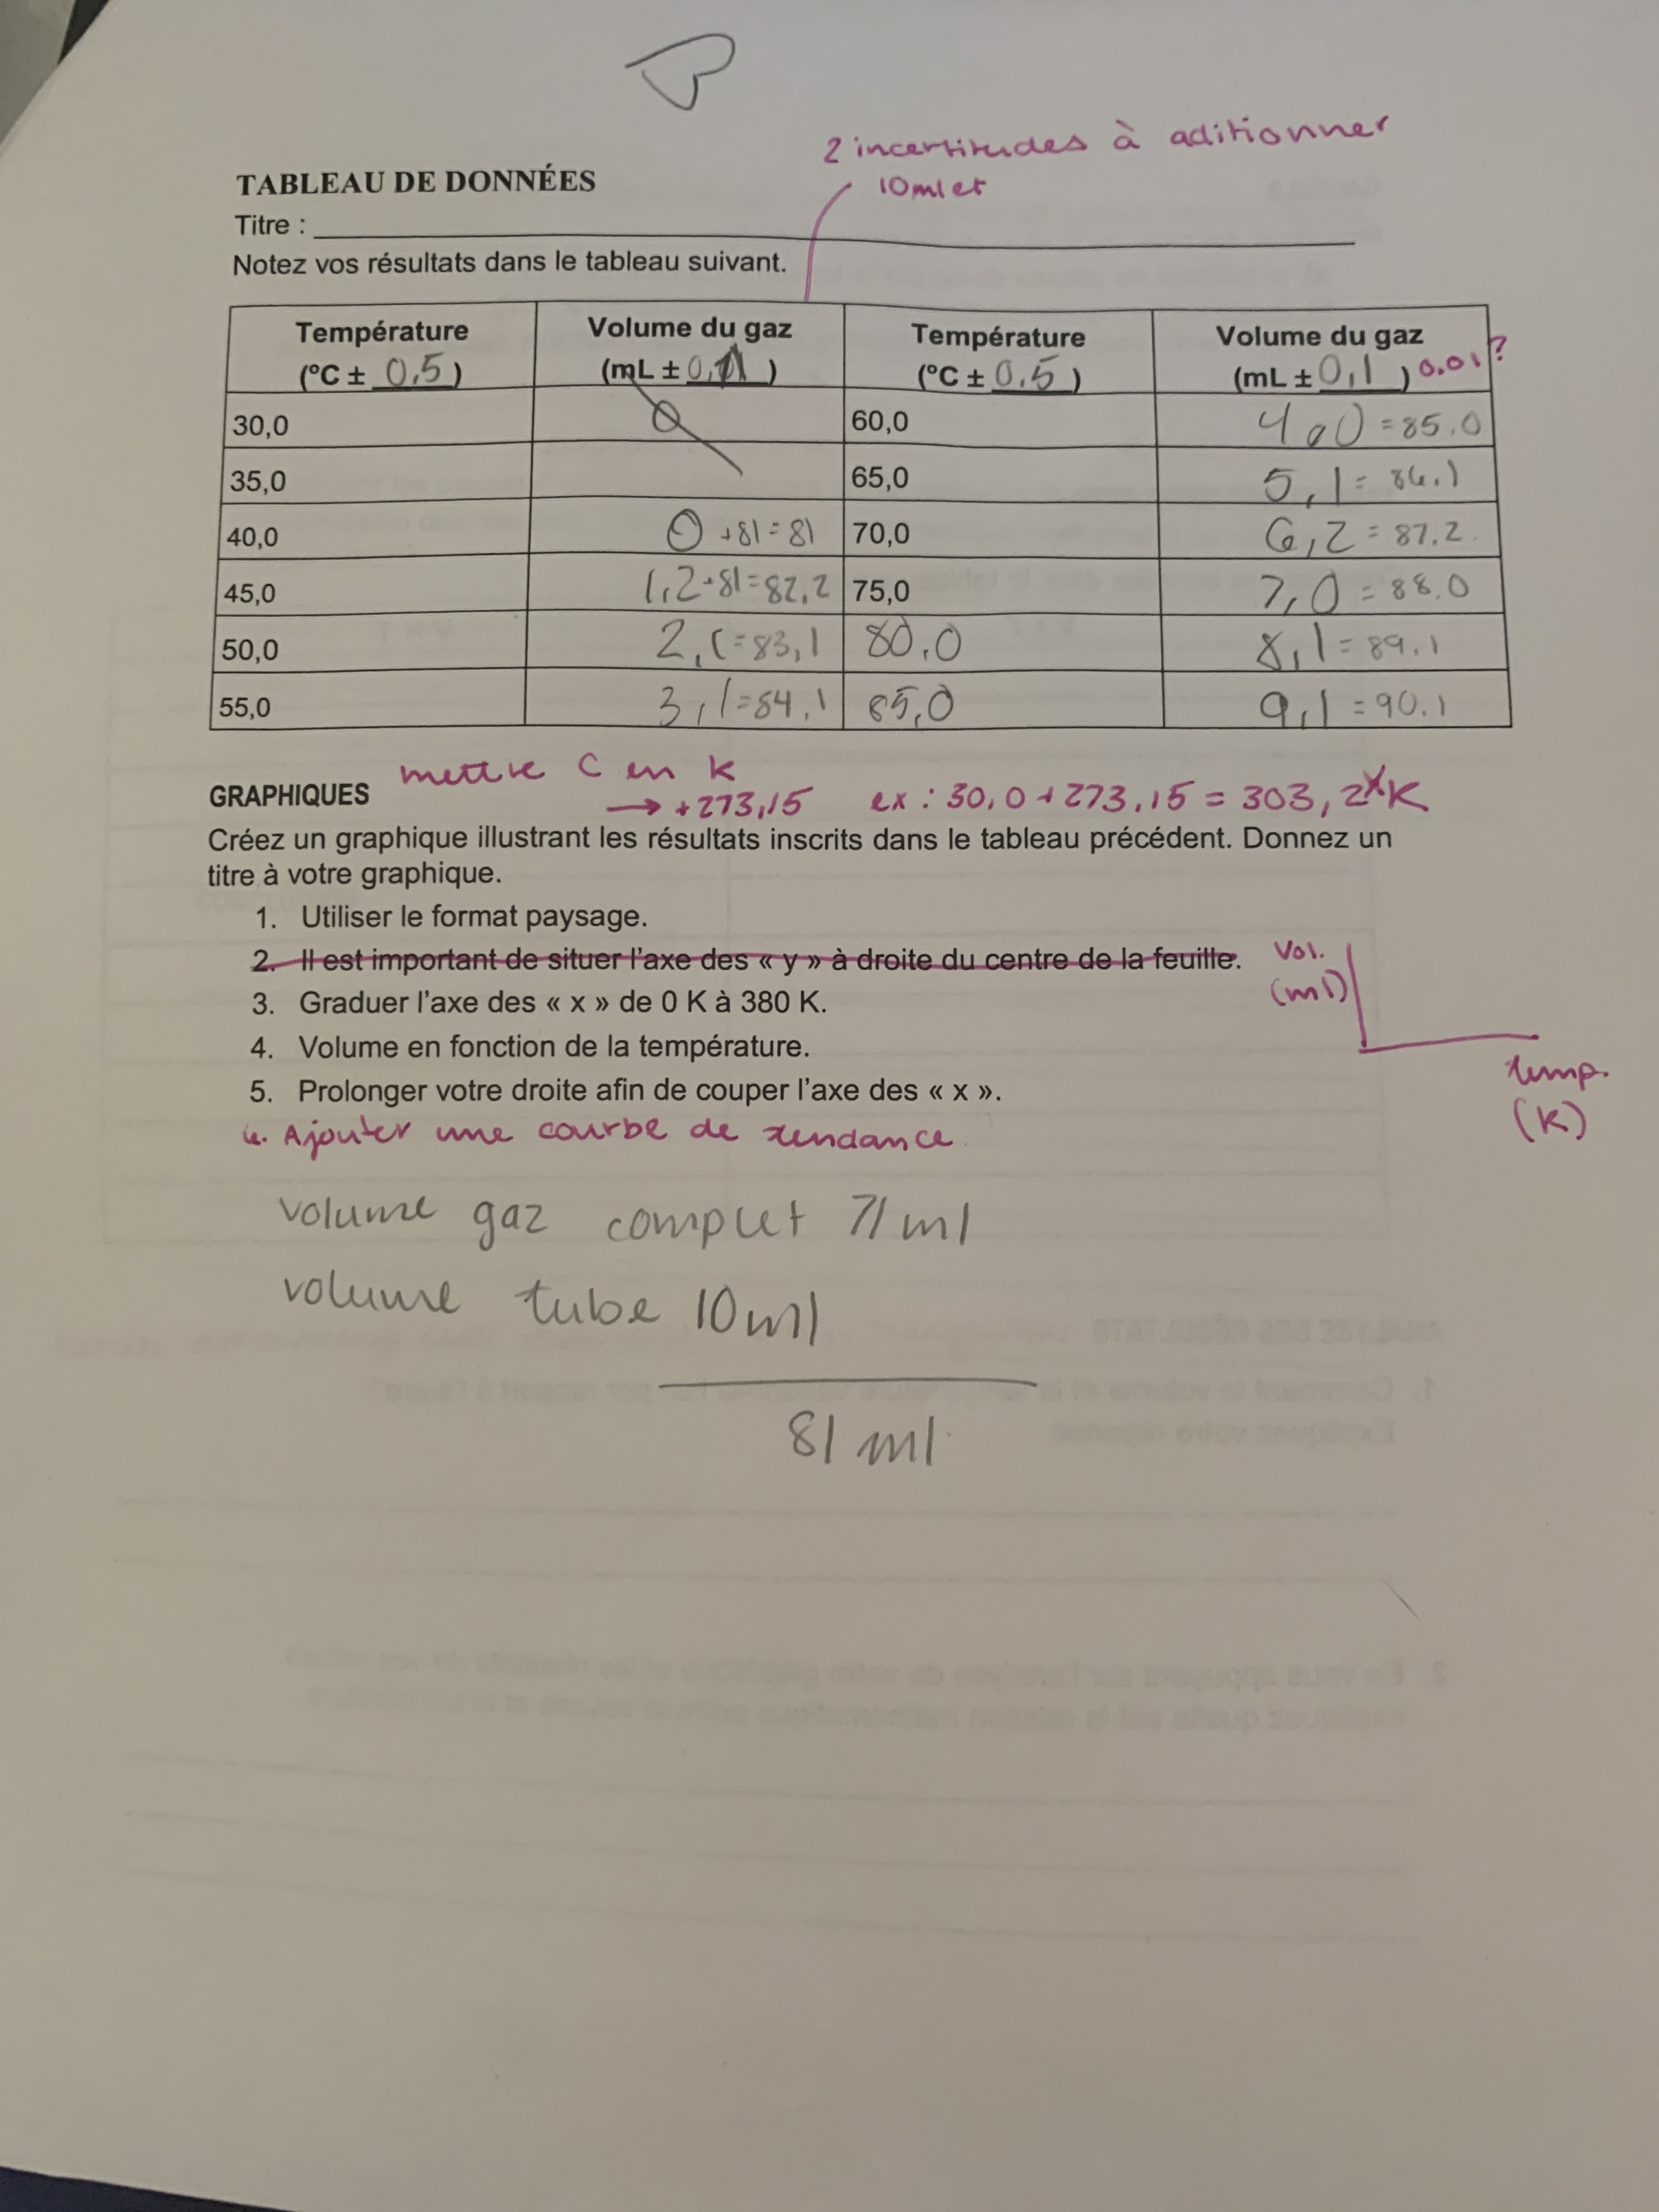 2 incertitudes à aditionner
10ml et
TABLEAU DE DONNÉES
Titre :
Notez vos résultats dans le tableau suivant.
Température (°C ± 0,5) Volume du gaz (mL ± 0,1) Température (°C ± 0,5) Volume du gaz (mL ± 0,1) 0.01?
30,0 0 60,0 4,0 = 85.0
35,0 65,0 5,1 = 86.1
40,0 0 +81 = 81 70,0 6,2 = 87.2
45,0 1,2+81=82,2 75,0 7,0 = 88.0
50,0 2,1=83,1 80,0 8,1 = 89.1
55,0 3,1=84,1 85,0 9,1 = 90.1
mettre C en K
GRAPHIQUES → +273,15 ex : 30,0 + 273,15 = 303,2 K
Créez un graphique illustrant les résultats inscrits dans le tableau précédent. Donnez un
titre à votre graphique.
1. Utiliser le format paysage.
2. Il est important de situer l'axe des « y » à droite du centre de la feuille.
Vol.
(ml)
3. Graduer l'axe des « x » de 0 K à 380 K.
4. Volume en fonction de la température.
temp.
(K)
5. Prolonger votre droite afin de couper l'axe des « x ».
6. Ajouter une courbe de tendance
volume gaz complet 71 ml
volume tube 10 ml
81 ml